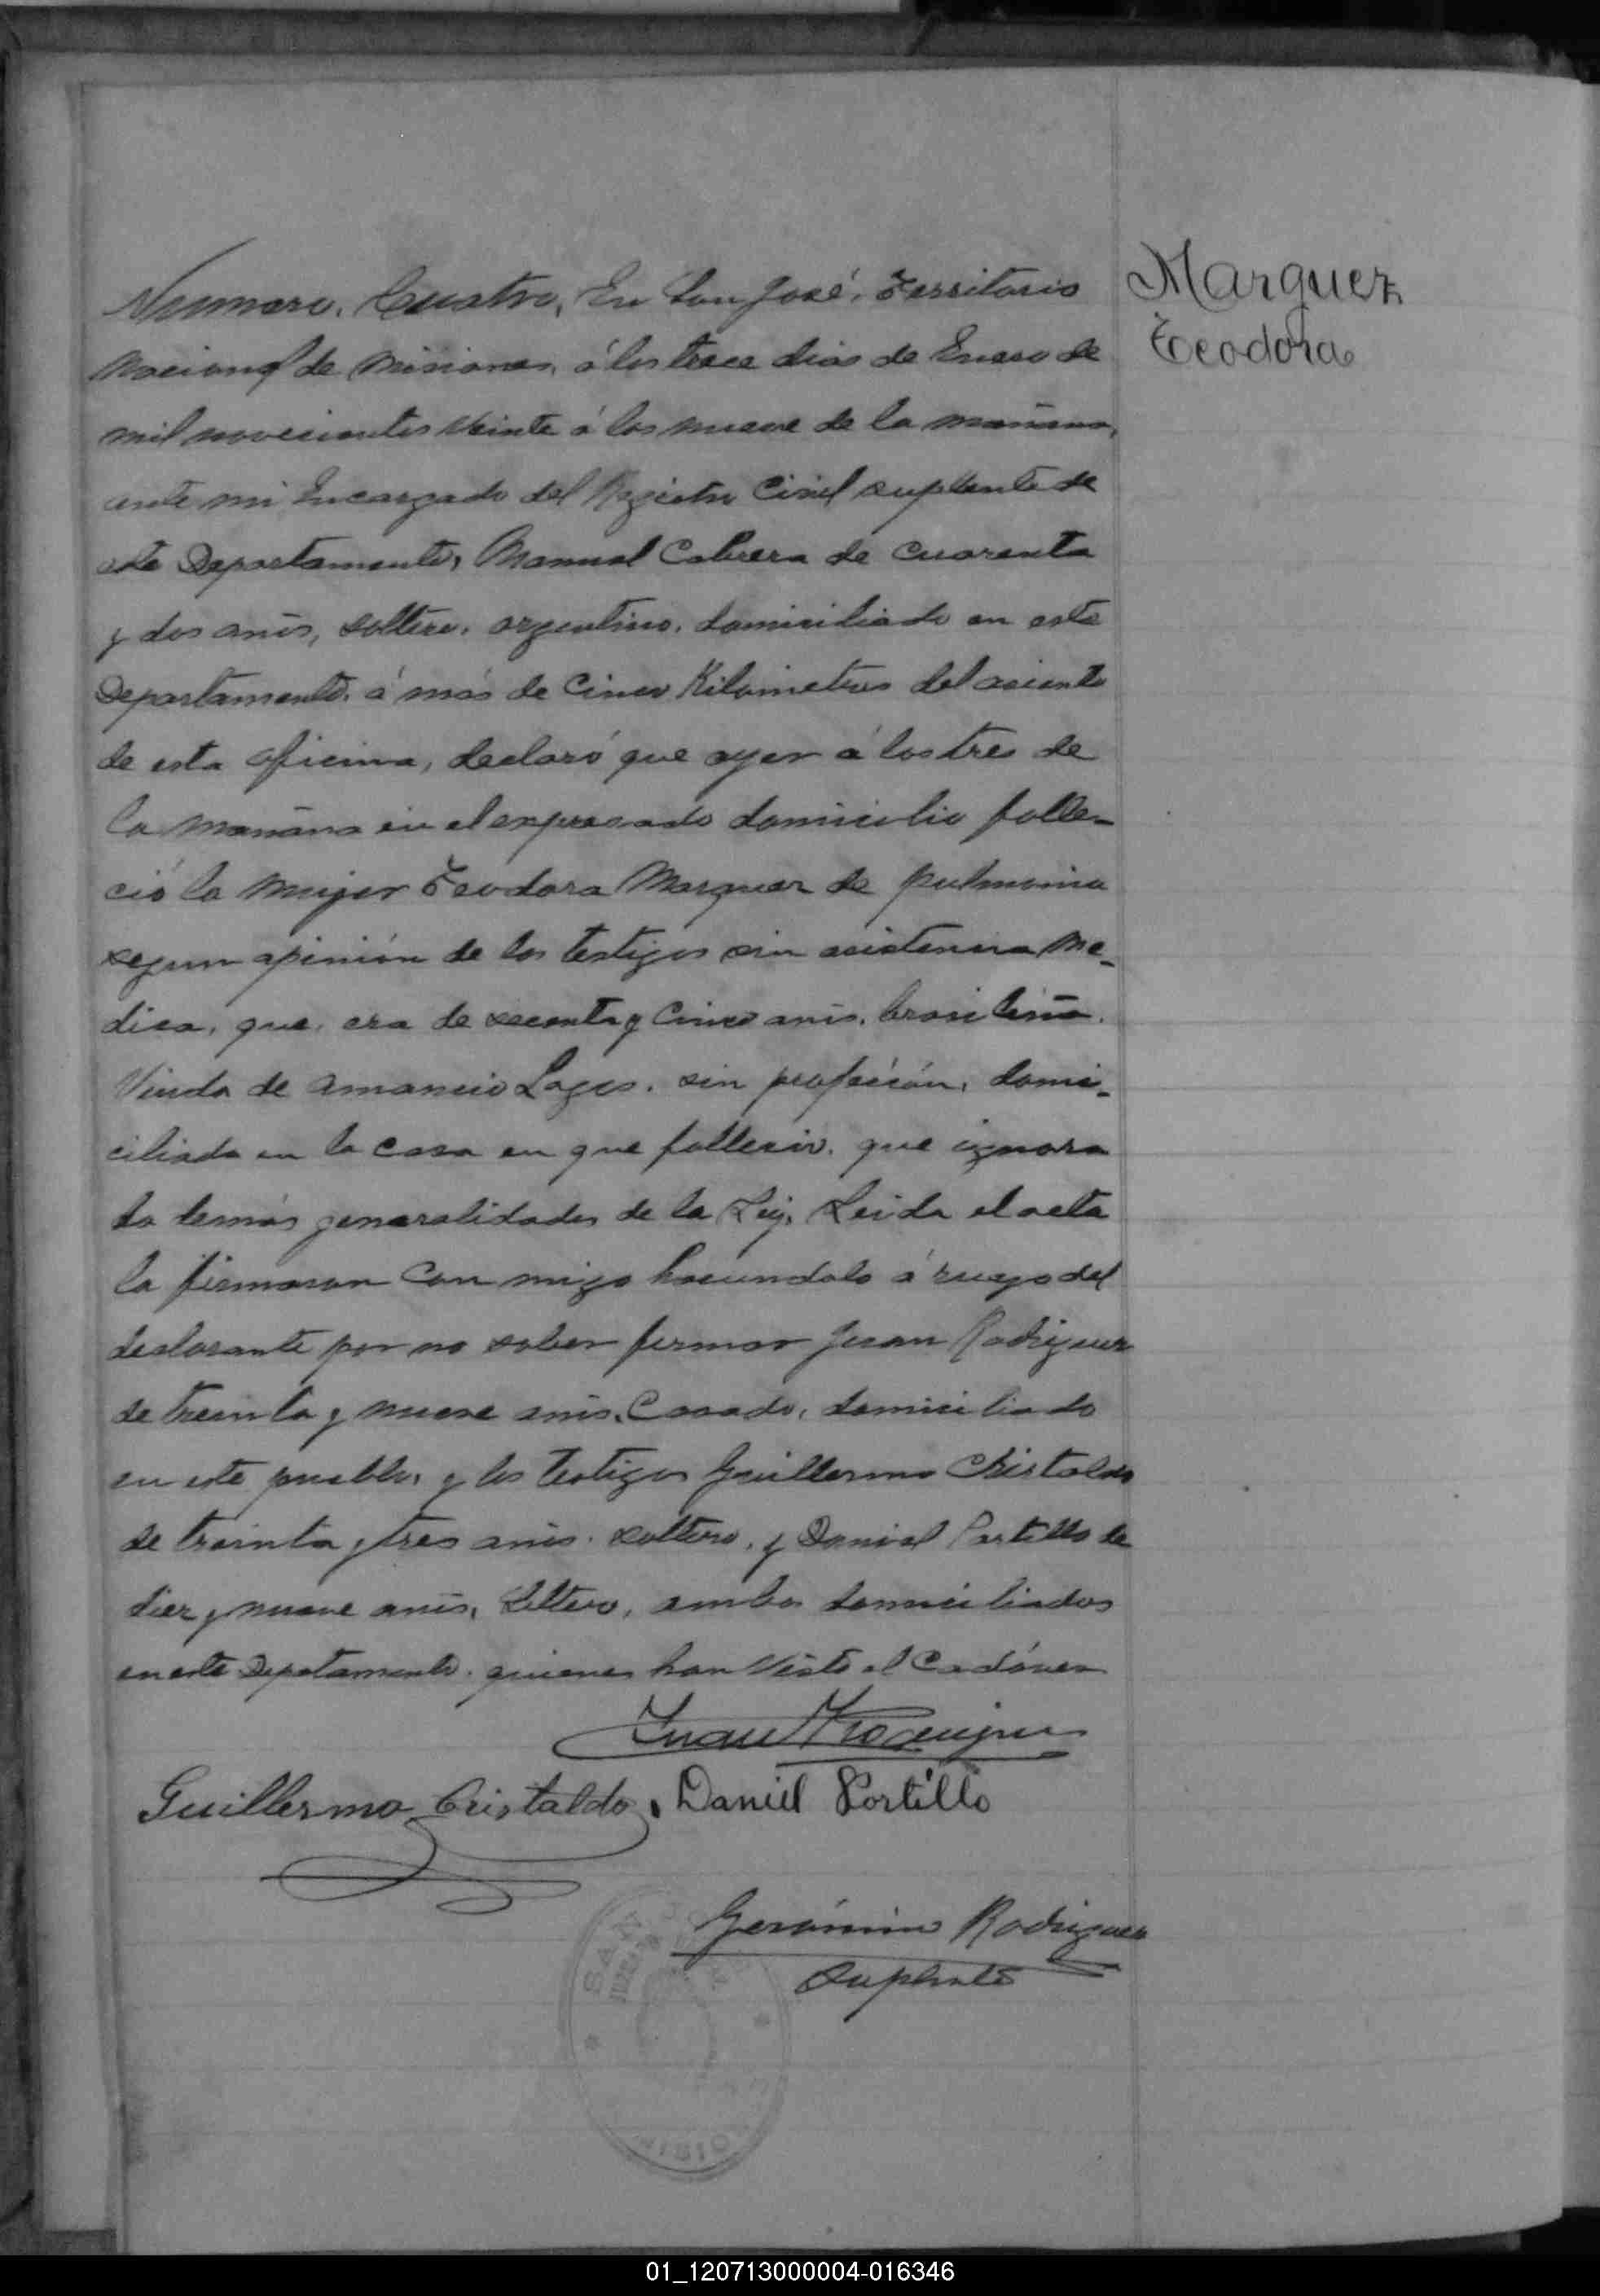 Numero, Cuatro, En San José, Territorio
Nacional de Misiones, á los trece dias de Enero de
mil novecientos Veinte á las nueve de la mañana,
ante mi Encargado del Registro Civil suplente de
este Departamento, Manuel Cabrera de cuarenta
y dos años, soltero, argentino, domiciliado en este
Departamento, á más de Cinco Kilometros del asiento
de esta oficina, declaró que ayer á las tres de
la mañana en el expresado domicilio falle-
ció la mujer Teodora Marquez de pulmonia
segun opinión de los testigos sin asistencia Me-
dica, que, era de secenta y Cinco años, brasileña.
Viuda de Amancio Lages. sin profeción, domi-
ciliada en la casa en que fallecio. que ignora
la demás generalidades de la Ley, Leida el acta
la firmaron Con migo haciendolo á ruego del
declarante por no saber firmar Juan Rodriguez
de treinta y nueve años, Casado, domiciliado
en este pueblo, y los testigos Guillermo Christaldo
de treinta y tres años. soltero, y Daniel Portillo de
diez y nueve años, soltero, ambos domiciliados
en este Depatamento. quienes han Visto el Cadáver
Juan Rodriguez
Guillermo Cristaldo, Daniel Portillo
Gerónimo Rodriguez
Suplente
SAN
Marquez
Teodora
01_120713000004-016346